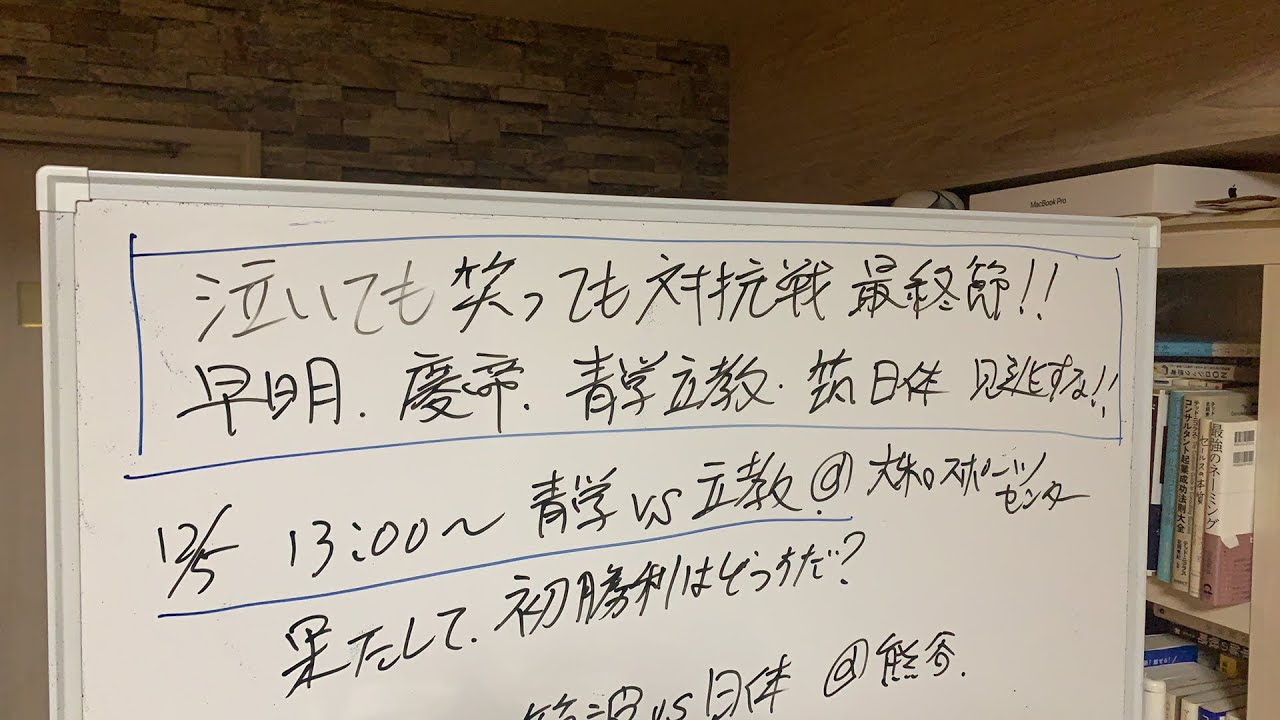 泣いても笑っても対抗戦 最終節!!
早明.慶帝.青学立教.筑日体 見逃すな!!
12/5 13:00〜 青学 vs 立教 @
スポーツ
センター
果たして、初勝利はどっちだ?
筑波 vs 日体 @ 熊谷.
MacBook Pro
最強のネーミング
コンサルタント起業成功法則大全